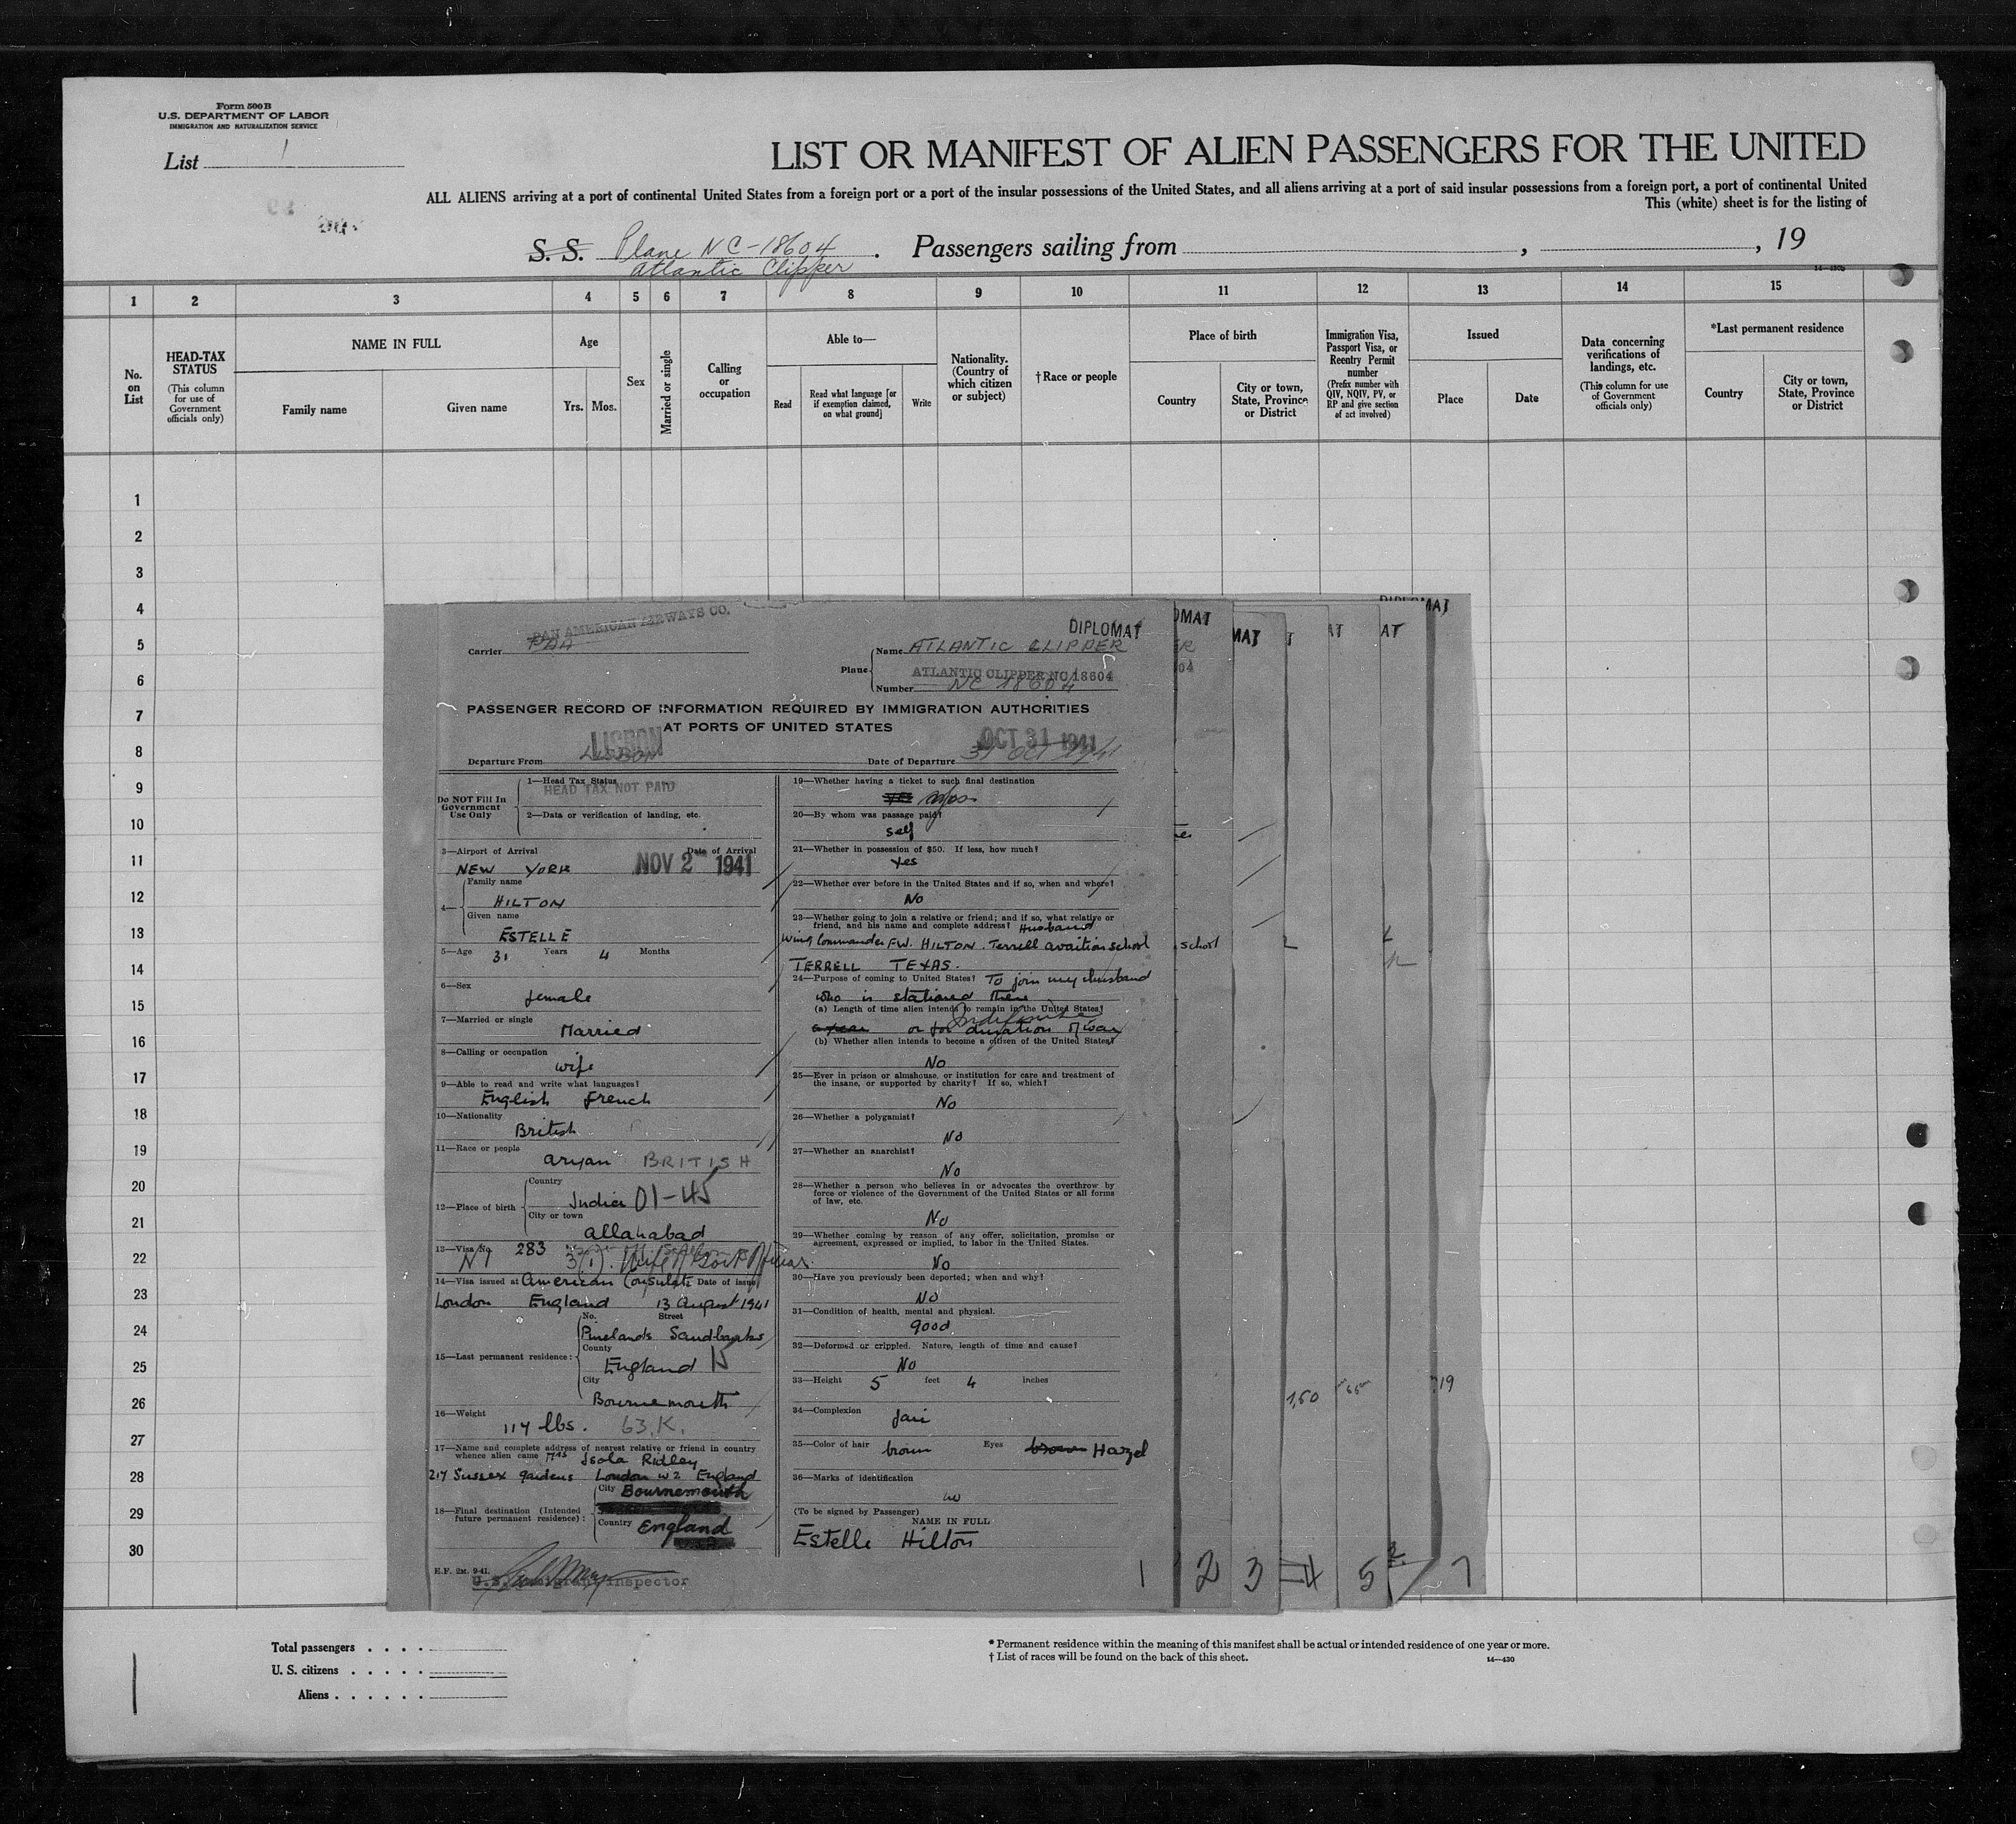 Form 500B
U.S. DEPARTMENT OF LABOR
IMMIGRATION AND NATURALIZATION SERVICE
List 1
LIST OR MANIFEST OF ALIEN PASSENGERS FOR THE UNITED
ALL ALIENS arriving at a port of continental United States from a foreign port or a port of the insular possessions of the United States, and all aliens arriving at a port of said insular possessions from a foreign port, a port of continental United
This (white) sheet is for the listing of
S. S. Plane NC-18604 . Passengers sailing from , , 19
Atlantic Clipper
1 2 3 4 5 6 7 8 9 10 11 12 13 14 15
No. on List
HEAD-TAX STATUS
(This column for use of Government officials only)
NAME IN FULL
Family name
Given name
Age
Yrs. Mos.
Sex
Married or single
Calling or occupation
Able to—
Read
Read what language [or if exemption claimed, on what ground]
Write
Nationality. (Country of which citizen or subject)
†Race or people
Place of birth
Country
City or town, State, Province or District
Immigration Visa, Passport Visa, or Reentry Permit number
(Prefix number with QIV, NQIV, PV, or RP and give section of act involved)
Issued
Place
Date
Data concerning verifications of landings, etc.
(This column for use of Government officials only)
*Last permanent residence
Country
City or town, State, Province or District
1
2
3
4
5
6
7
8
9
10
11
12
13
14
15
16
17
18
19
20
21
22
23
24
25
26
27
28
29
30
PAN AMERICAN AIRWAYS CO.
Carrier PAA
DIPLOMAT
Plane
Name ATLANTIC CLIPPER
ATLANTIC CLIPPER NC 18604
Number NC 18604
PASSENGER RECORD OF INFORMATION REQUIRED BY IMMIGRATION AUTHORITIES
AT PORTS OF UNITED STATES
LISBON
Departure From LISBON
OCT 31 1941
Date of Departure 31 Oct 1941
Do NOT Fill In
Government
Use Only
1—Head Tax Status
HEAD TAX NOT PAID
2—Data or verification of landing, etc.
3—Airport of Arrival Date of Arrival
NEW YORK NOV 2 1941
4— Family name
HILTON
Given name
ESTELLE
5—Age 31 Years 4 Months
6—Sex
female
7—Married or single
Married
8—Calling or occupation
wife
9—Able to read and write what languages?
English French
10—Nationality
British
11—Race or people
aryan BRITISH
12—Place of birth
Country
India 01-45
City or town
allahabad
13—Visa No. 283
3(1). Wife of Gov't Officer
14—Visa issued at American Consulate Date of issue
London England 13 August 1941
15—Last permanent residence:
No. Street
Pinelands Sandbanks
County
England
City
Bournemouth
16—Weight
117 lbs. 63.K.
17—Name and complete address of nearest relative or friend in country
whence alien came Mrs Isola Ridley
217 Sussex gardens London W2 England
18—Final destination (Intended
future permanent residence):
City Bournemouth
Country England
E.F. 2M. 9-41.
U.S. Immigrant Inspector
19—Whether having a ticket to such final destination
yes
20—By whom was passage paid?
self
21—Whether in possession of $50. If less, how much?
yes
22—Whether ever before in the United States and if so, when and where?
No
23—Whether going to join a relative or friend; and if so, what relative or
friend, and his name and complete address? Husband
Wing Commander F.W. HILTON. Terrell avaition school
TERRELL TEXAS.
24—Purpose of coming to United States? To join my husband
who is stationed there
(a) Length of time alien intends to remain in the United States?
Indefinite
a year or for duration of war
(b) Whether alien intends to become a citizen of the United States?
No
25—Ever in prison or almshouse, or institution for care and treatment of
the insane, or supported by charity? If so, which?
No
26—Whether a polygamist?
No
27—Whether an anarchist?
No
28—Whether a person who believes in or advocates the overthrow by
force or violence of the Government of the United States or all forms
of law, etc.
No
29—Whether coming by reason of any offer, solicitation, promise or
agreement, expressed or implied, to labor in the United States.
No
30—Have you previously been deported; when and why?
NO
31—Condition of health, mental and physical.
good
32—Deformed or crippled. Nature, length of time and cause?
No
33—Height 5 feet 4 inches
34—Complexion
fair
35—Color of hair brown Eyes brown Hazel
36—Marks of identification
no
(To be signed by Passenger)
NAME IN FULL
Estelle Hilton
school
150
19
1 2 3 4 5 7
Total passengers . . . .
U. S. citizens . . . . .
Aliens . . . . . .
* Permanent residence within the meaning of this manifest shall be actual or intended residence of one year or more.
† List of races will be found on the back of this sheet.
14—430